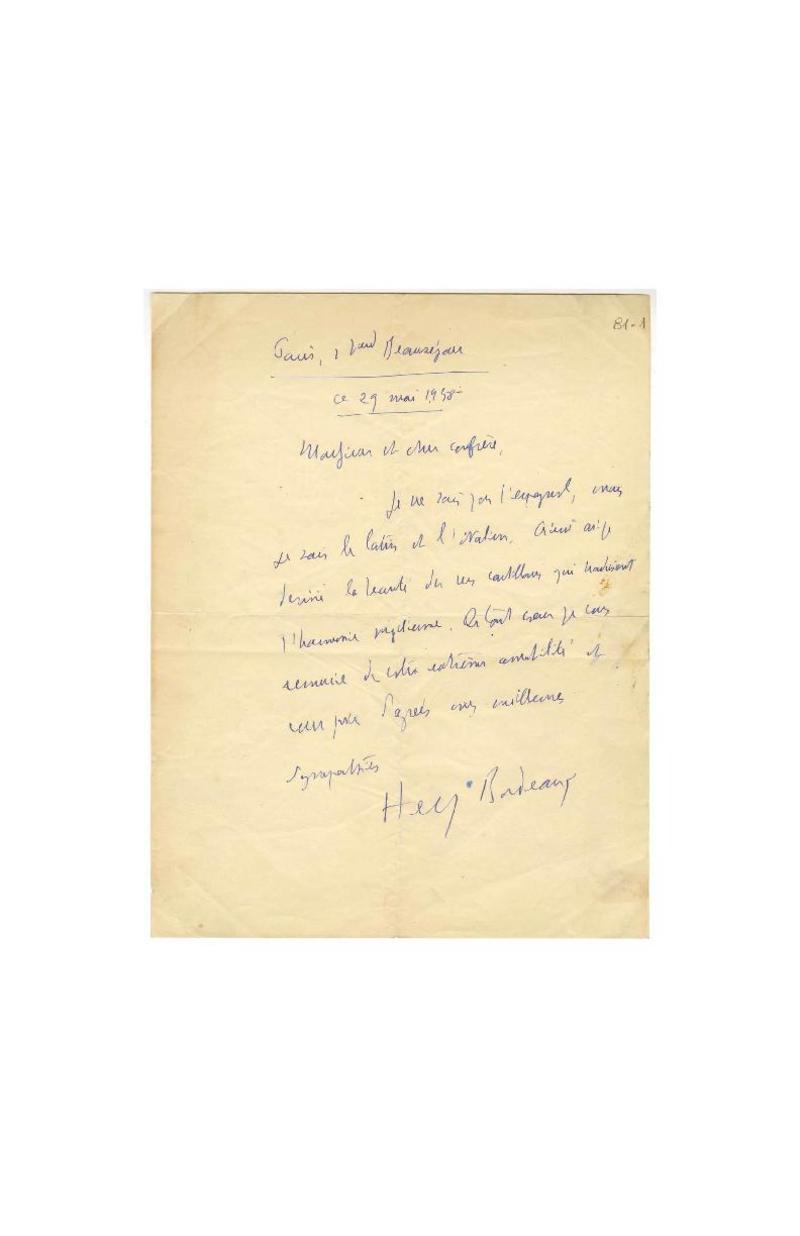 81-1
Paris, 1 Bard Beauséjour
ce 29 mai 1958
Monsieur et cher confrère,
Je ne sais pas l'espagnol, mais
je sais le latin et l'italien. Ainsi ai-je
deviné la beauté de vos qui traduisent
l'harmonie. De tout cœur je vous
remercie de votre extrême amabilité et
vous prie d'agréer mes meilleures
sympathies
Henry Bordeaux